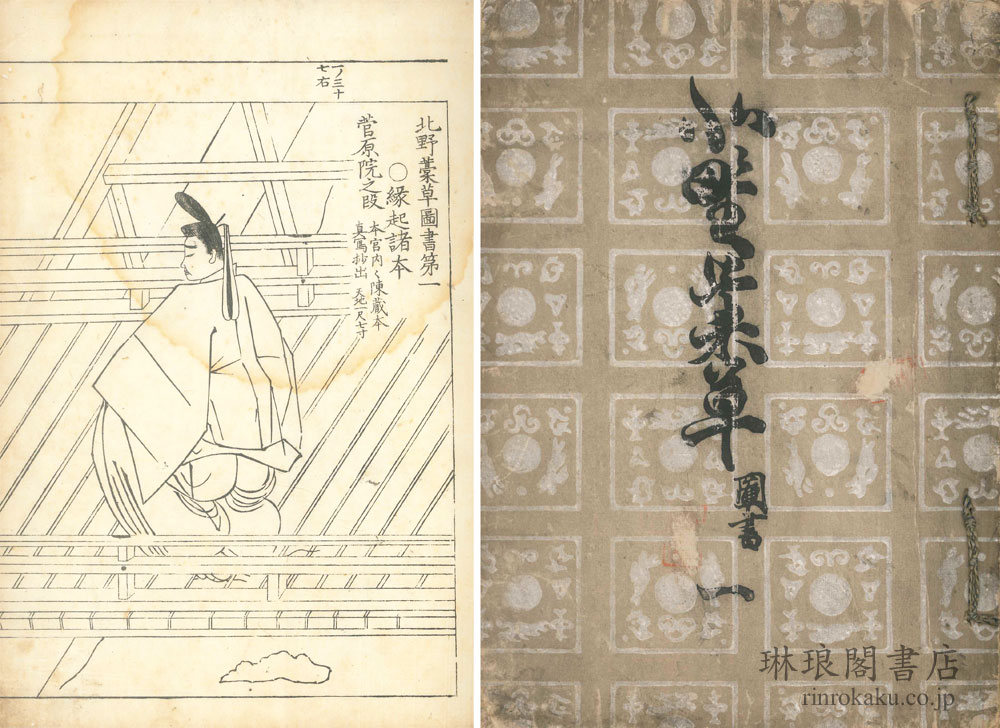 一ノ三十
七右
北野藁草圖書第一
○縁起諸本
菅原院之段
本宮内々陳蔵本
真寫抄出 天地一尺七寸
北野藁草
圖書
一
琳琅閣書店
rinrokaku.co.jp